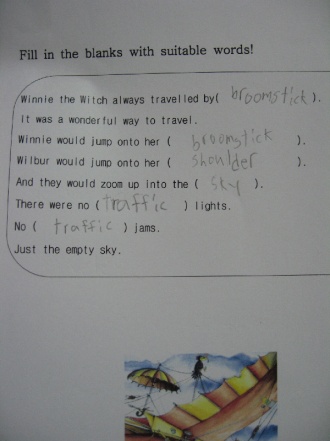 Fill in the blanks with suitable words!
Winnie the Witch always travelled by( broomstick ).
It was a wonderful way to travel.
Winnie would jump onto her ( broomstick ).
Wilbur would jump onto her ( shoulder ).
And they would zoom up into the ( sky ).
There were no ( traffic ) lights.
No ( traffic ) jams.
Just the empty sky.